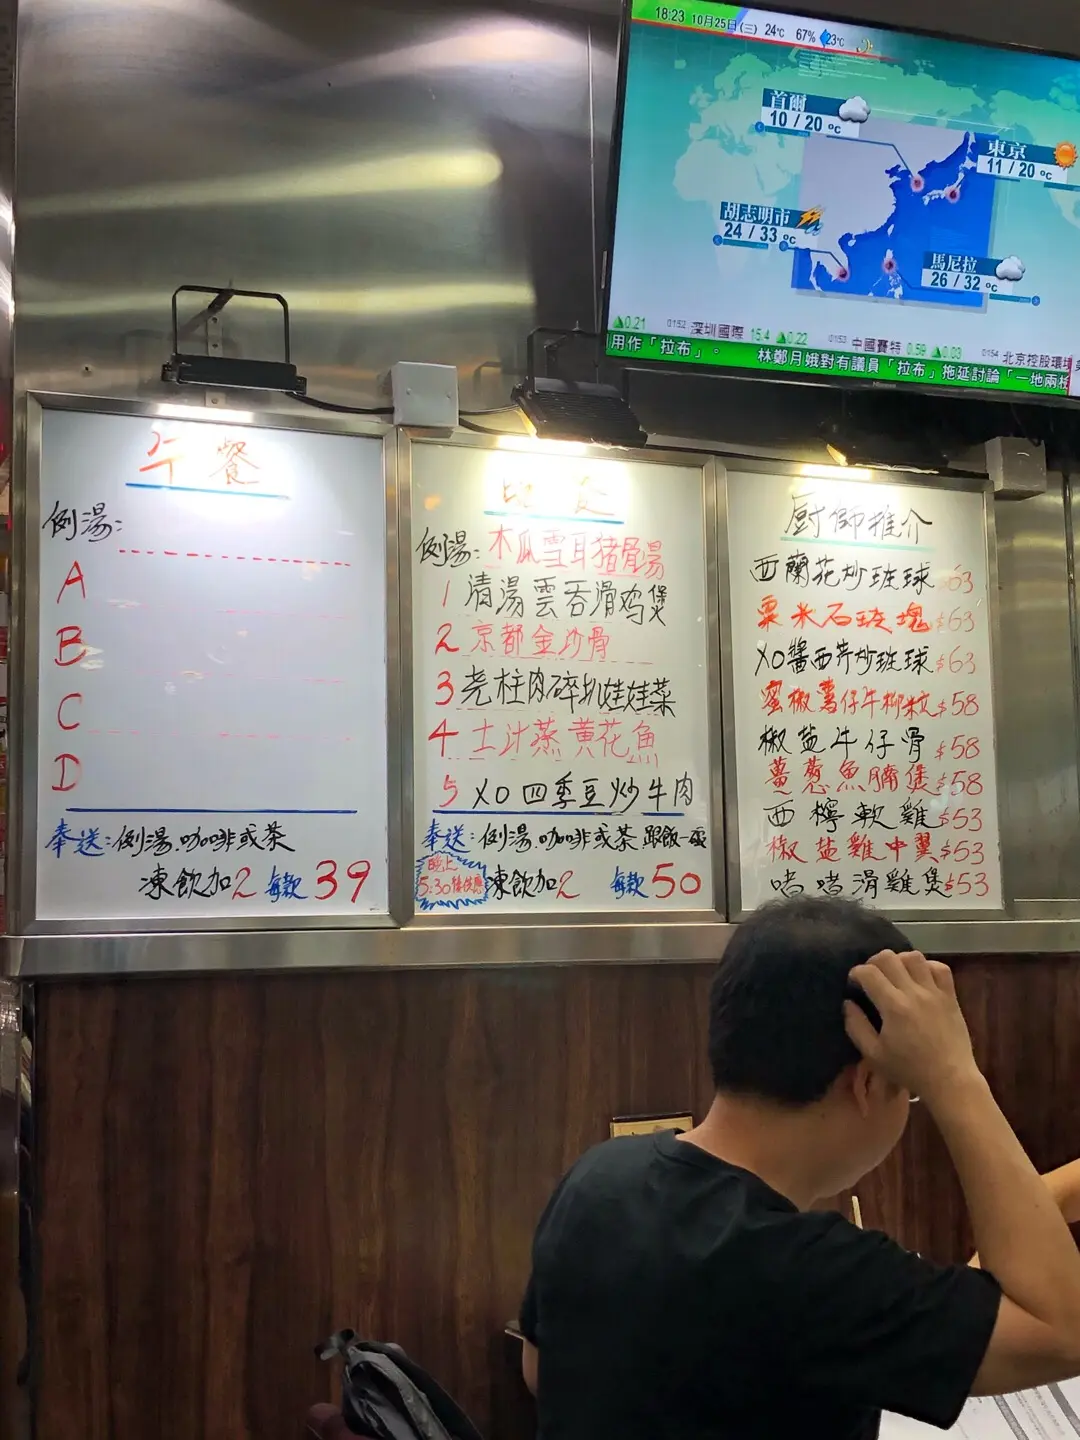 18:23 10月25日(三) 24℃ 67% 23℃
首爾
10 / 20 ℃
東京
11 / 20 ℃
胡志明市
24 / 33 ℃
馬尼拉
26 / 32 ℃
▲0.21 0152 深圳國際 15.4 ▲0.22 0153 中國賽特 0.59 ▲0.03 0154 北京控股環境
用作「拉布」。 林鄭月娥對有議員「拉布」拖延討論「一地兩檢
午餐
例湯:
A
B
C
D
奉送:例湯.咖啡或茶
凍飲加2 每款39
例湯:木瓜雪耳猪骨湯
1 清湯雲吞滑鸡煲
2 京都金沙骨
3 老柱肉碎扒娃娃菜
4 士汁蒸黄花魚
5 XO四季豆炒牛肉
奉送:例湯.咖啡或茶 跟飯一
晚上
5:30
凍飲加2 每款50
厨師推介
西蘭花炒班球 $63
粟米石班塊 $63
XO醬西芹炒班球 $63
蜜椒薯仔牛柳粒 $58
椒盐牛仔骨 $58
薑葱魚腩煲 $58
西檸軟雞 $53
椒盐雞中翼 $53
啫啫滑雞煲 $53